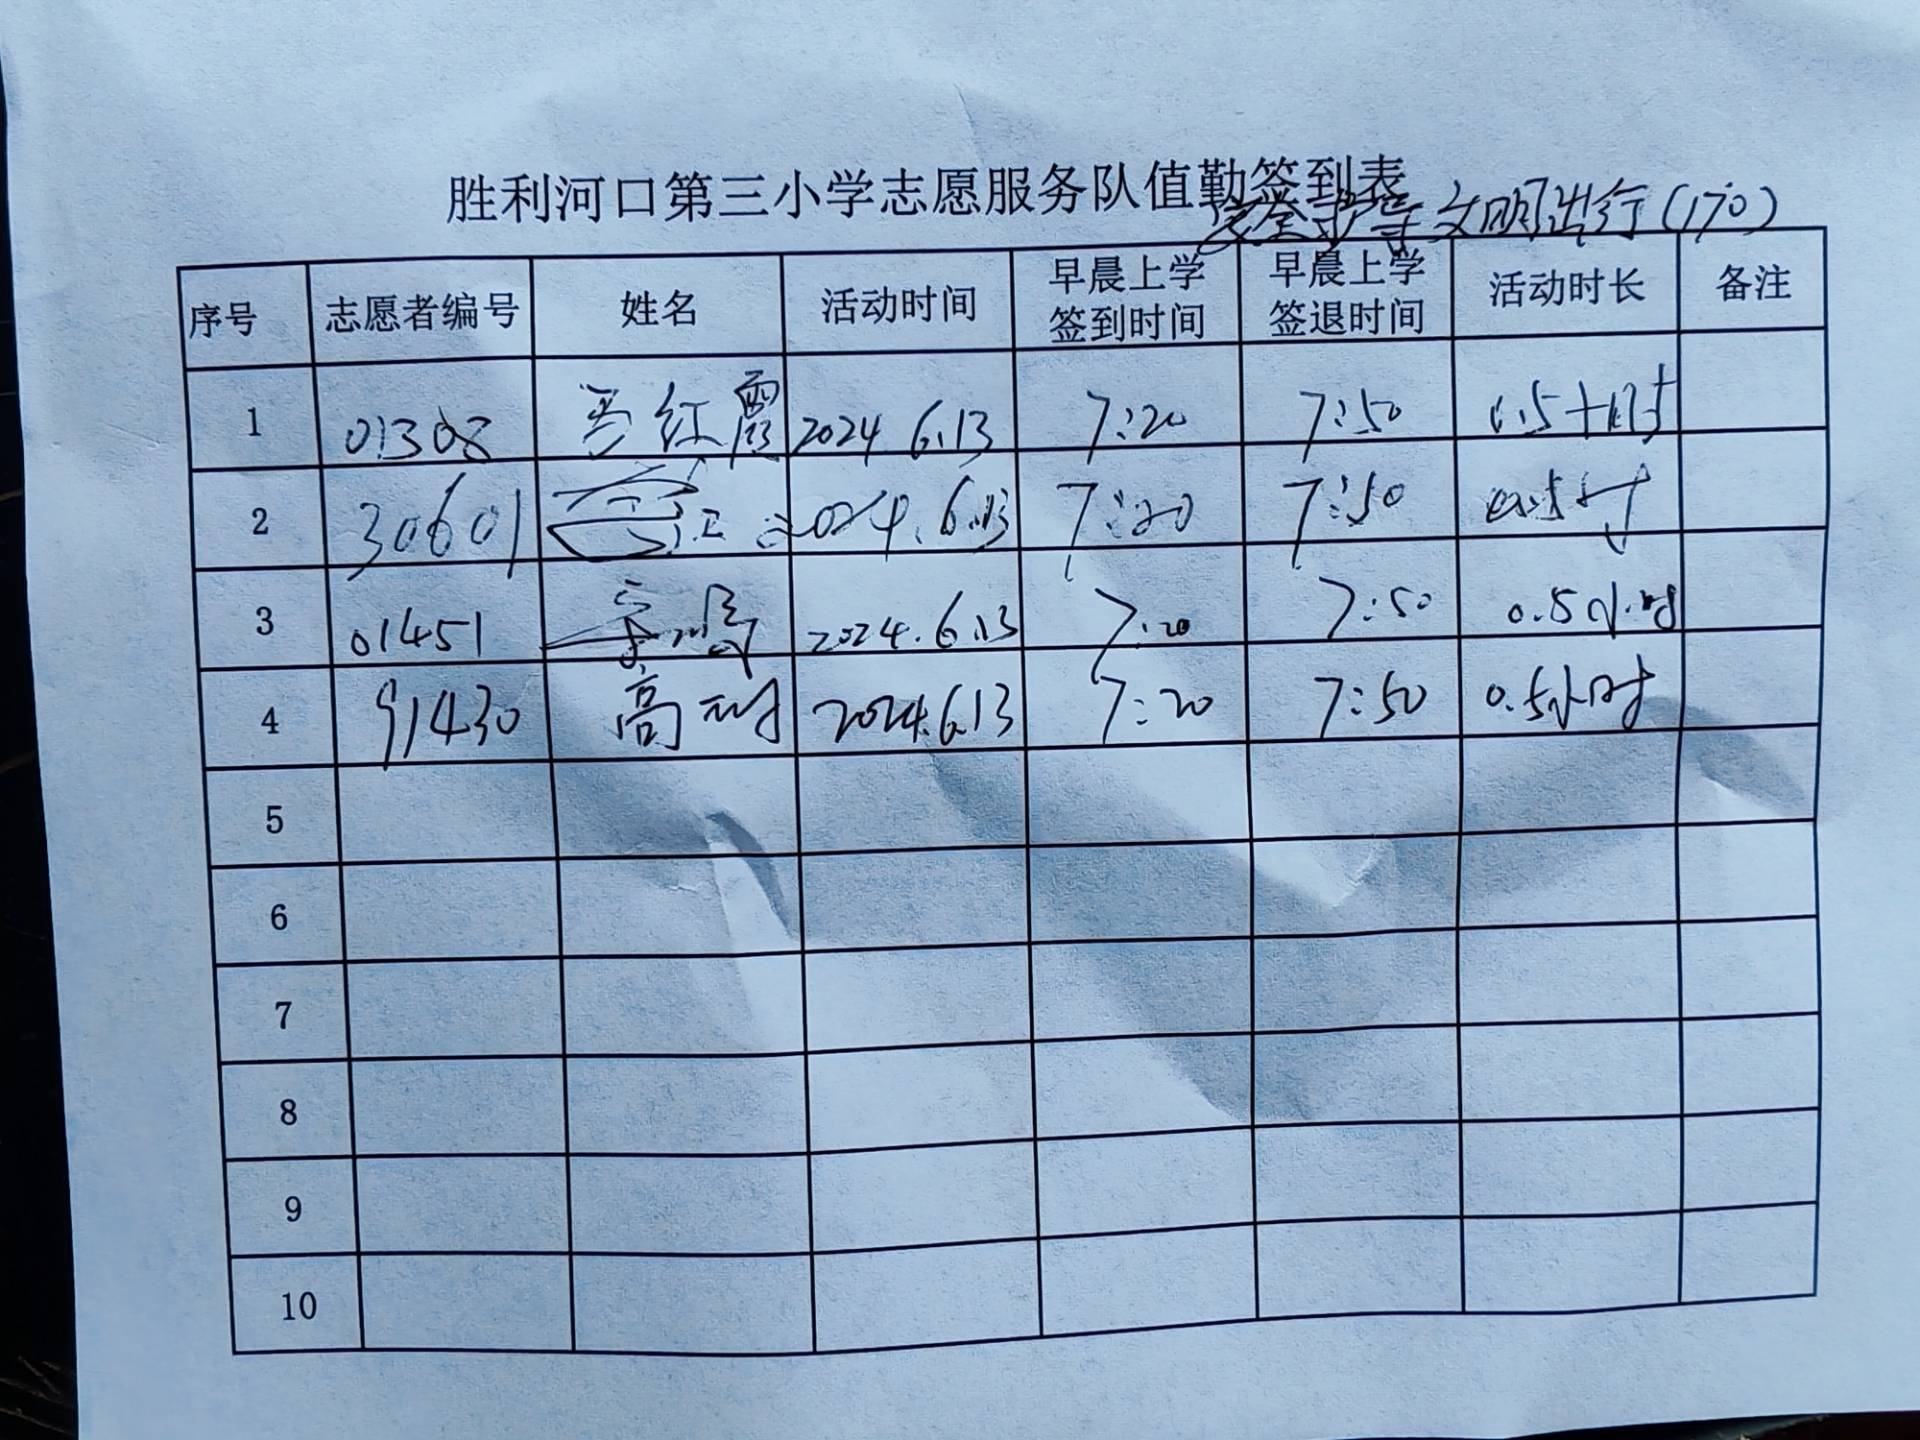 胜利河口第三小学志愿服务队值勤签到表
安全护导文明出行(170)
序号 志愿者编号 姓名 活动时间 早晨上学签到时间 早晨上学签退时间 活动时长 备注
1 01308 红霞 2024.6.13 7:20 7:50 0.5小时
2 30601 2024.6.13 7:20 7:50 0.5小时
3 01451 2024.6.13 7:20 7:50 0.5小时
4 91430 高 2024.6.13 7:20 7:50 0.5小时
5
6
7
8
9
10